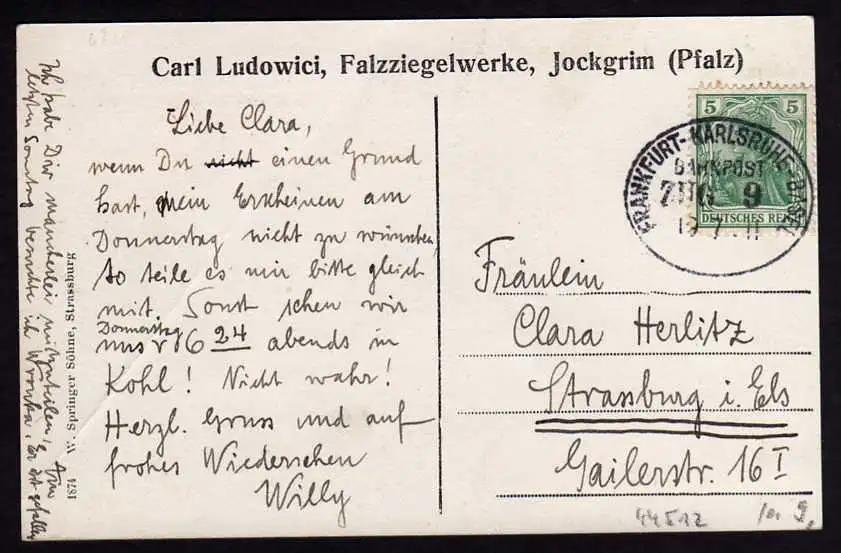 Carl Ludowici, Falzziegelwerke, Jockgrim (Pfalz)
Liebe Clara,
wenn Du nicht einen Grund
hast, mein Erscheinen am
Donnerstag nicht zu wünschen,
so teile es mir bitte gleich
mit. Sonst sehen wir
Donnerstag
uns 6 24 abends in
Kehl! Nicht wahr!
Herzl. Gruss und auf
frohes Wiedersehen
Willy
Ich habe Dir mancherlei mitzuteilen. Am
letzten Sonntag besuchte ich
W. Springer Söhne, Strassburg
1874
5 5
DEUTSCHES REICH
FRANKFURT-KARLSRUHE-BASEL
BAHNPOST
ZUG 9
7 11
Fräulein
Clara Herlitz
Strassburg i. Els
Gailerstr. 16 I
44512